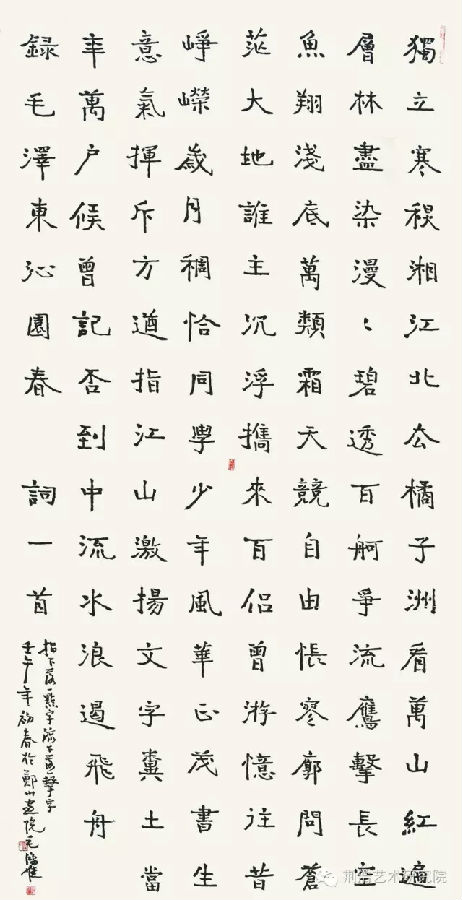 獨立寒秋湘江北去橘子洲看萬山紅遍
層林盡染漫〻碧透百舸爭流鷹擊長空
魚翔淺底萬類霜天競自由悵寥廓問蒼
茫大地誰主沉浮攜來百侶曾游憶往昔
崢嶸歲月稠恰同學少年風華正茂書生
意氣揮斥方遒指江山激揚文字糞土當
年萬户候曾記否到中流水浪遏飛舟
錄毛澤東沁園春 詞一首
壬午年初春於鄭山畫院
艺术研究院